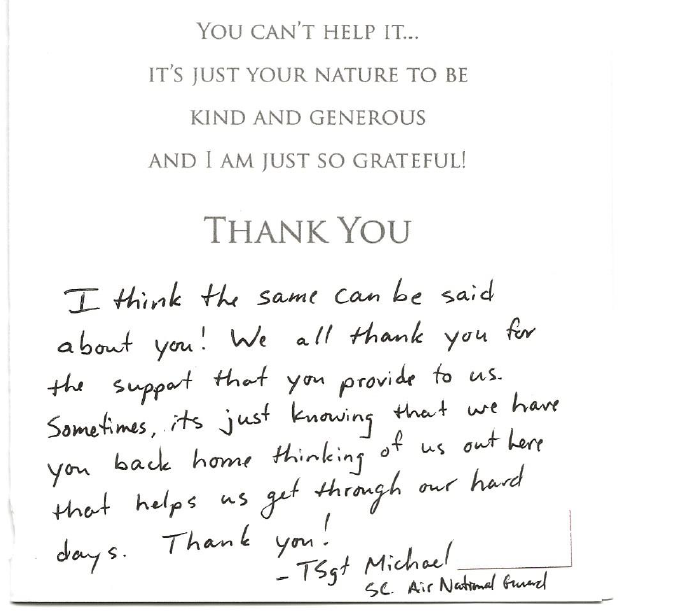 YOU CAN'T HELP IT...
IT'S JUST YOUR NATURE TO BE
KIND AND GENEROUS
AND I AM JUST SO GRATEFUL!
THANK YOU
I think the same can be said
about you! We all thank you for
the support that you provide to us.
Sometimes, its just knowing that we have
you back home thinking of us out here
that helps us get through our hard
days. Thank you!
- TSgt Michael
SC. Air National Guard